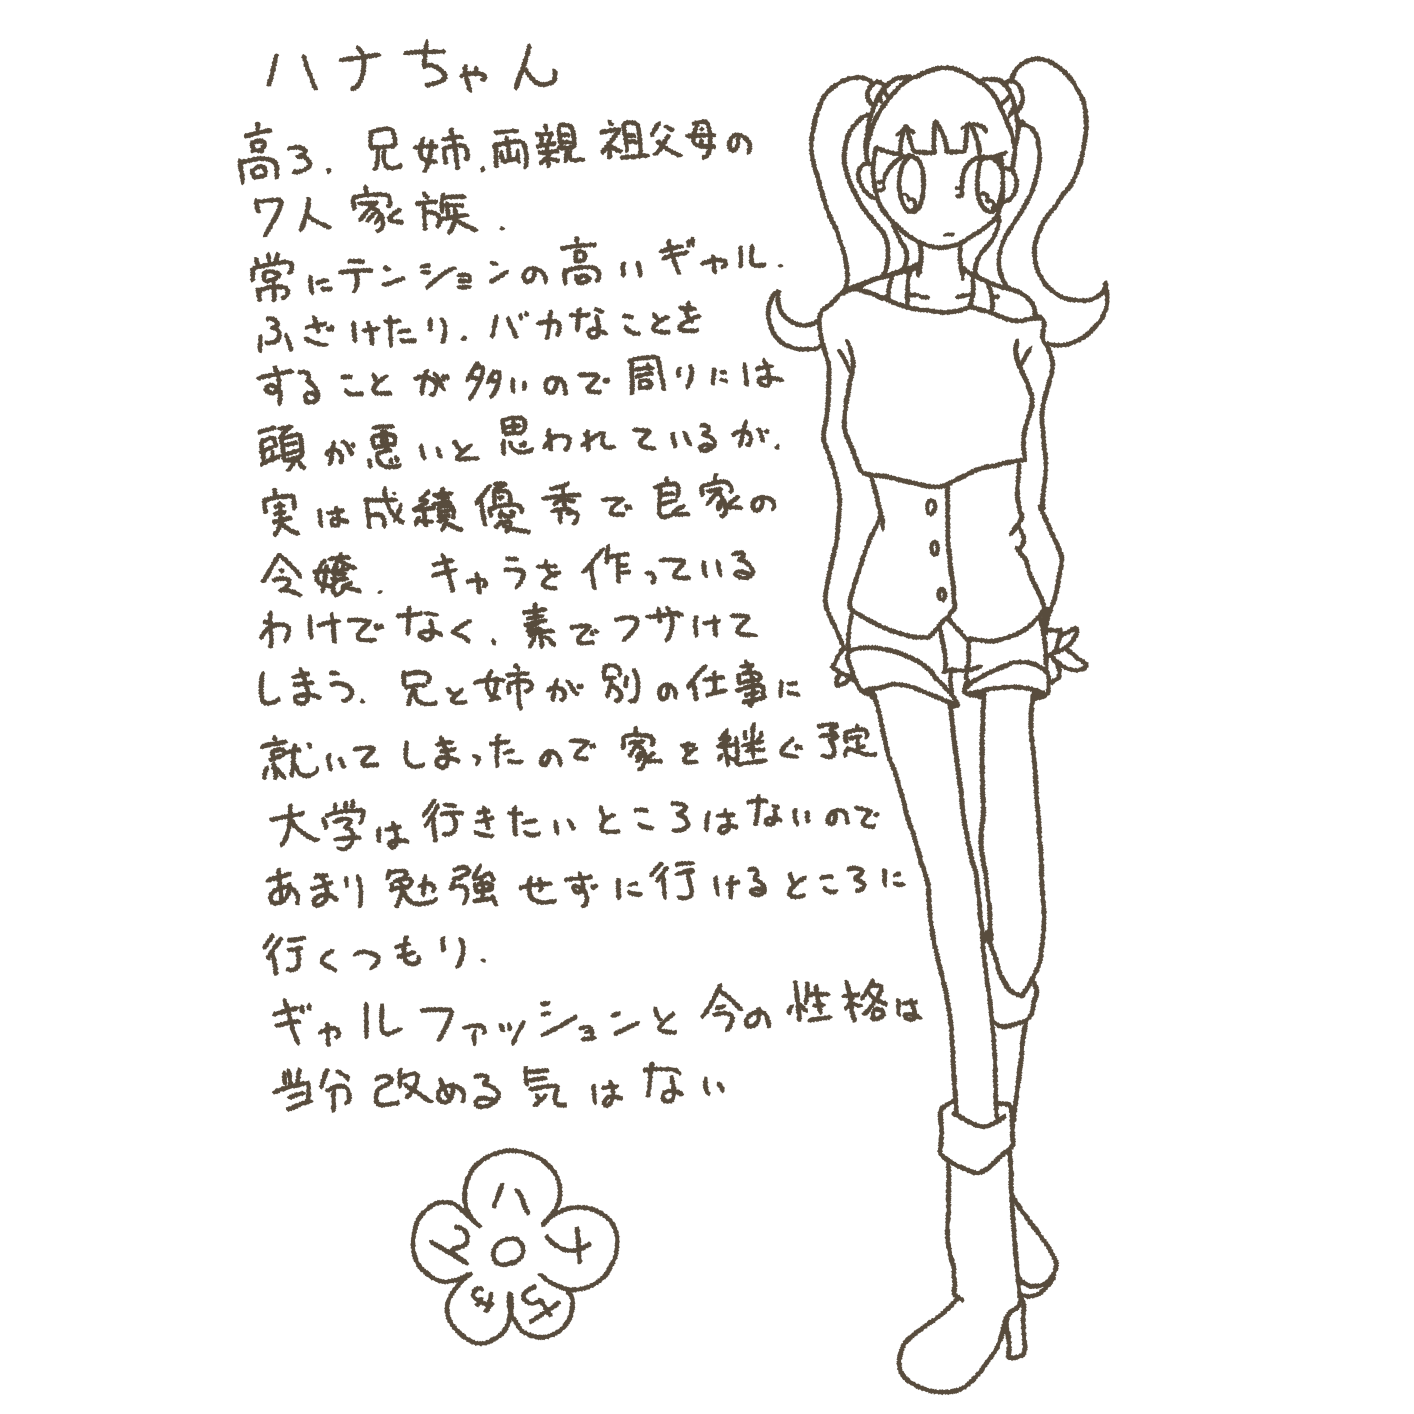 ハナちゃん
高3. 兄姉.両親 祖父母の
7人家族.
常にテンションの高いギャル.
ふざけたり.バカなことを
することが多いので周りには
頭が悪いと思われているが.
実は成績優秀で良家の
令嬢. キャラを作っている
わけでなく.素でフザけて
しまう.兄と姉が別の仕事に
就いてしまったので家を継ぐ予定
大学は行きたいところはないので
あまり勉強せずに行けるところに
行くつもり.
ギャルファッションと今の性格は
当分改める気はない
ハナちゃん